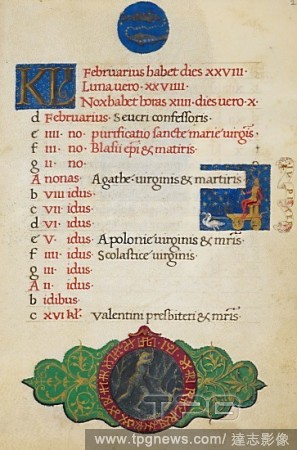 KL Februarius habet dies xxviii.
Luna uero xxviiii.
Nox habet horas xiiii. dies uero x.
d Februarius. Seueri confessoris.
e iiii. no. purificatio sancte marie uirgis.
f iii. no. Blasii epi & matiris.
g ii. no.
A nonas Agathe uirginis & martiris.
b viii idus.
c vii. idus.
d vi. idus.
e v. idus. Apolonie uirginis & mris.
f iiii. idus. Scolastice uirginis.
g iii. idus.
A ii. idus.
b idibus
c xvi kl. Valentini presbiteri & mris.
TPG
www.tpgnews.com / 達志影像